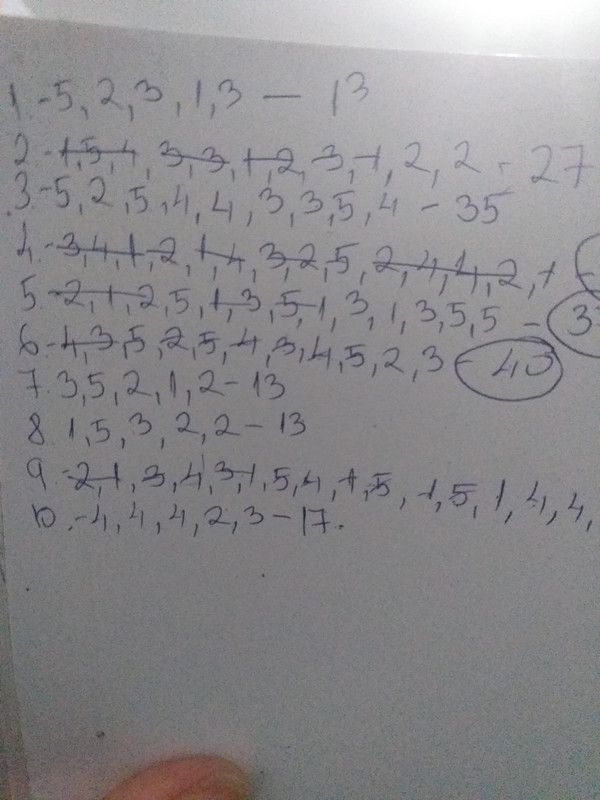 1.-5, 2, 3, 1, 3 — 13
2.-1, 5, 4, 3, 3, 1, 2, 3, 1, 2, 2 - 27
3.-5, 2, 5, 4, 4, 3, 3, 5, 4 - 35
4.-3, 4, 1, 2, 1, 4, 3, 2, 5, 2, 4, 1, 4, 2, 1 -
5.-2, 1, 2, 5, 1, 3, 5, 1, 3, 1, 3, 5, 5 - 3
6.-4, 3, 5, 2, 5, 4, 3, 4, 5, 2, 3 - 40
7. 3, 5, 2, 1, 2 - 13
8. 1, 5, 3, 2, 2 - 13
9.-2, 1, 3, 4, 3, 1, 5, 4, 1, 5, 1, 5, 1, 4, 4,
10.-4, 4, 4, 2, 3 - 17.